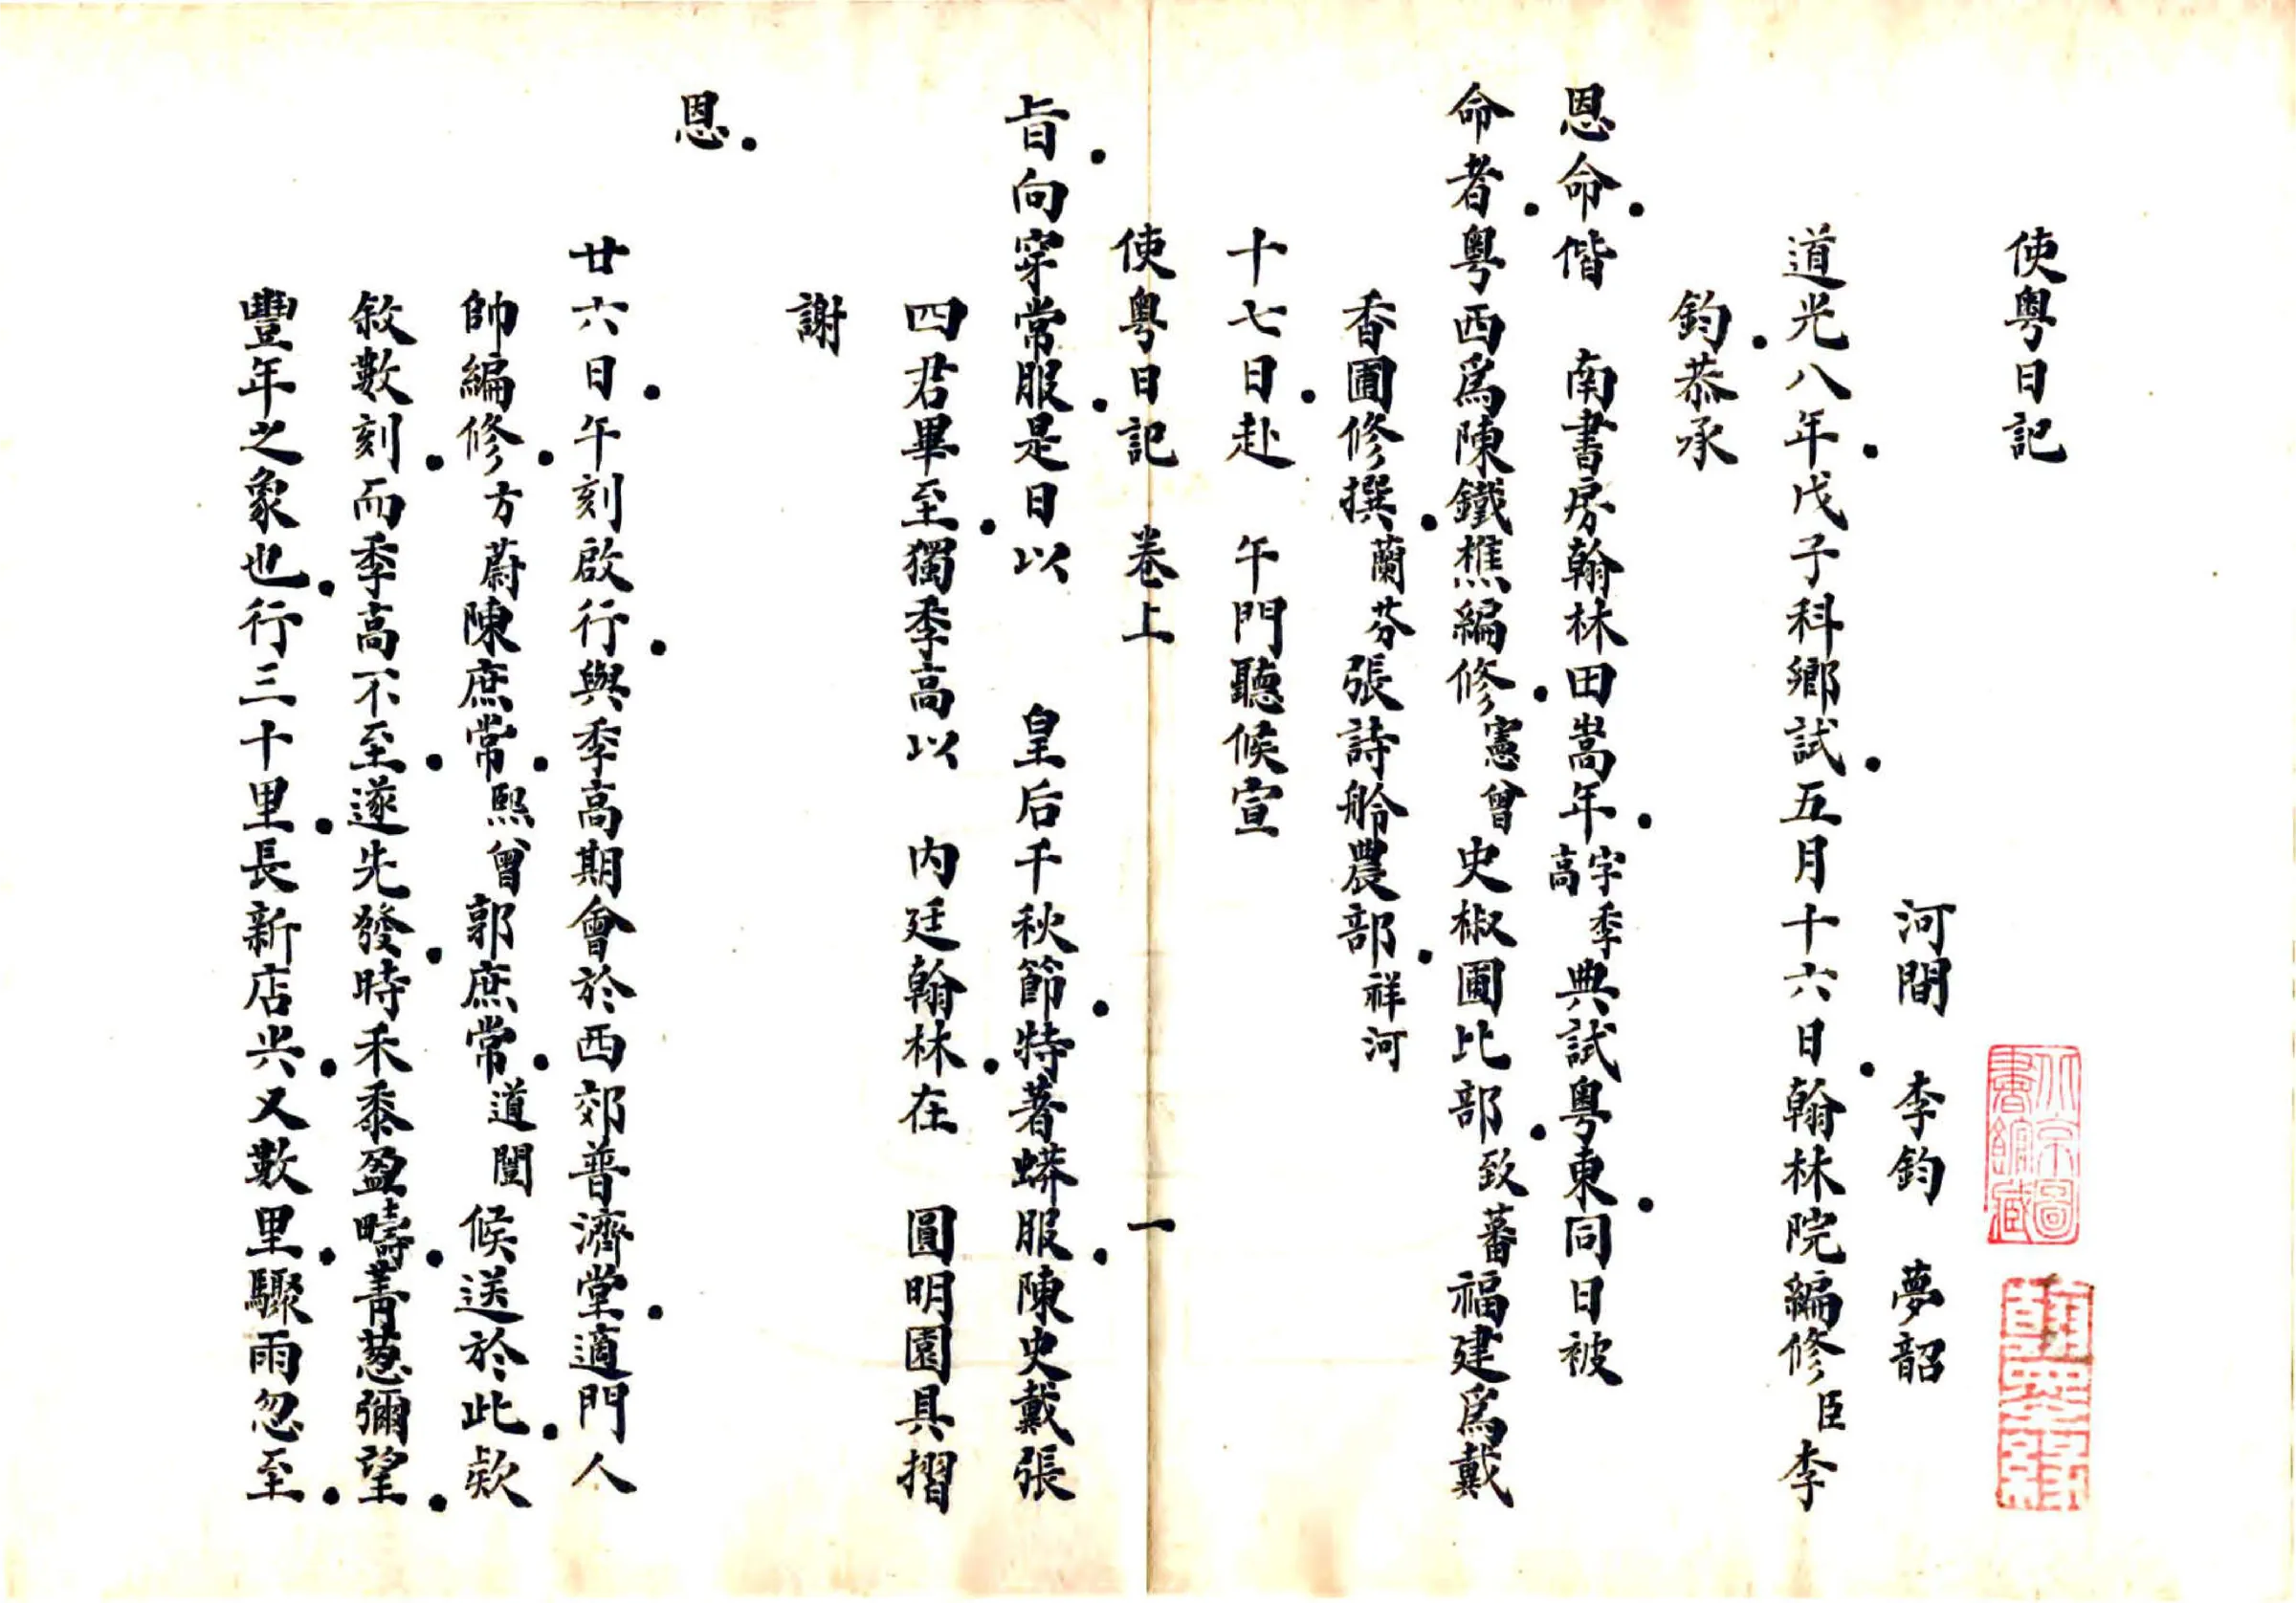 使粵日記
河間 李鈞 夢韶
道光八年戊子科鄉試五月十六日翰林院編修臣李
鈞恭承
恩命偕 南書房翰林田嵩年字季高典試粵東同日被
命者粵西爲陳鐵樵編修憲曾史椒圃比部致蕃福建爲戴
香圃修撰蘭芬張詩舲農部祥河
十七日赴 午門聽候宣
使粵日記 卷上 一
旨向穿常服是日以 皇后千秋節特著蟒服陳史戴張
四君畢至獨季高以 內廷翰林在 圓明園具摺
謝
恩
廿六日午刻啟行與季高期會於西郊普濟堂適門人
帥編修方蔚陳庶常熙曾郭庶常道闓候送於此欵
敘數刻而季高不至遂先發時禾黍盈疇菁蔥彌望
豐年之象也行三十里長新店尖又數里驟雨忽至